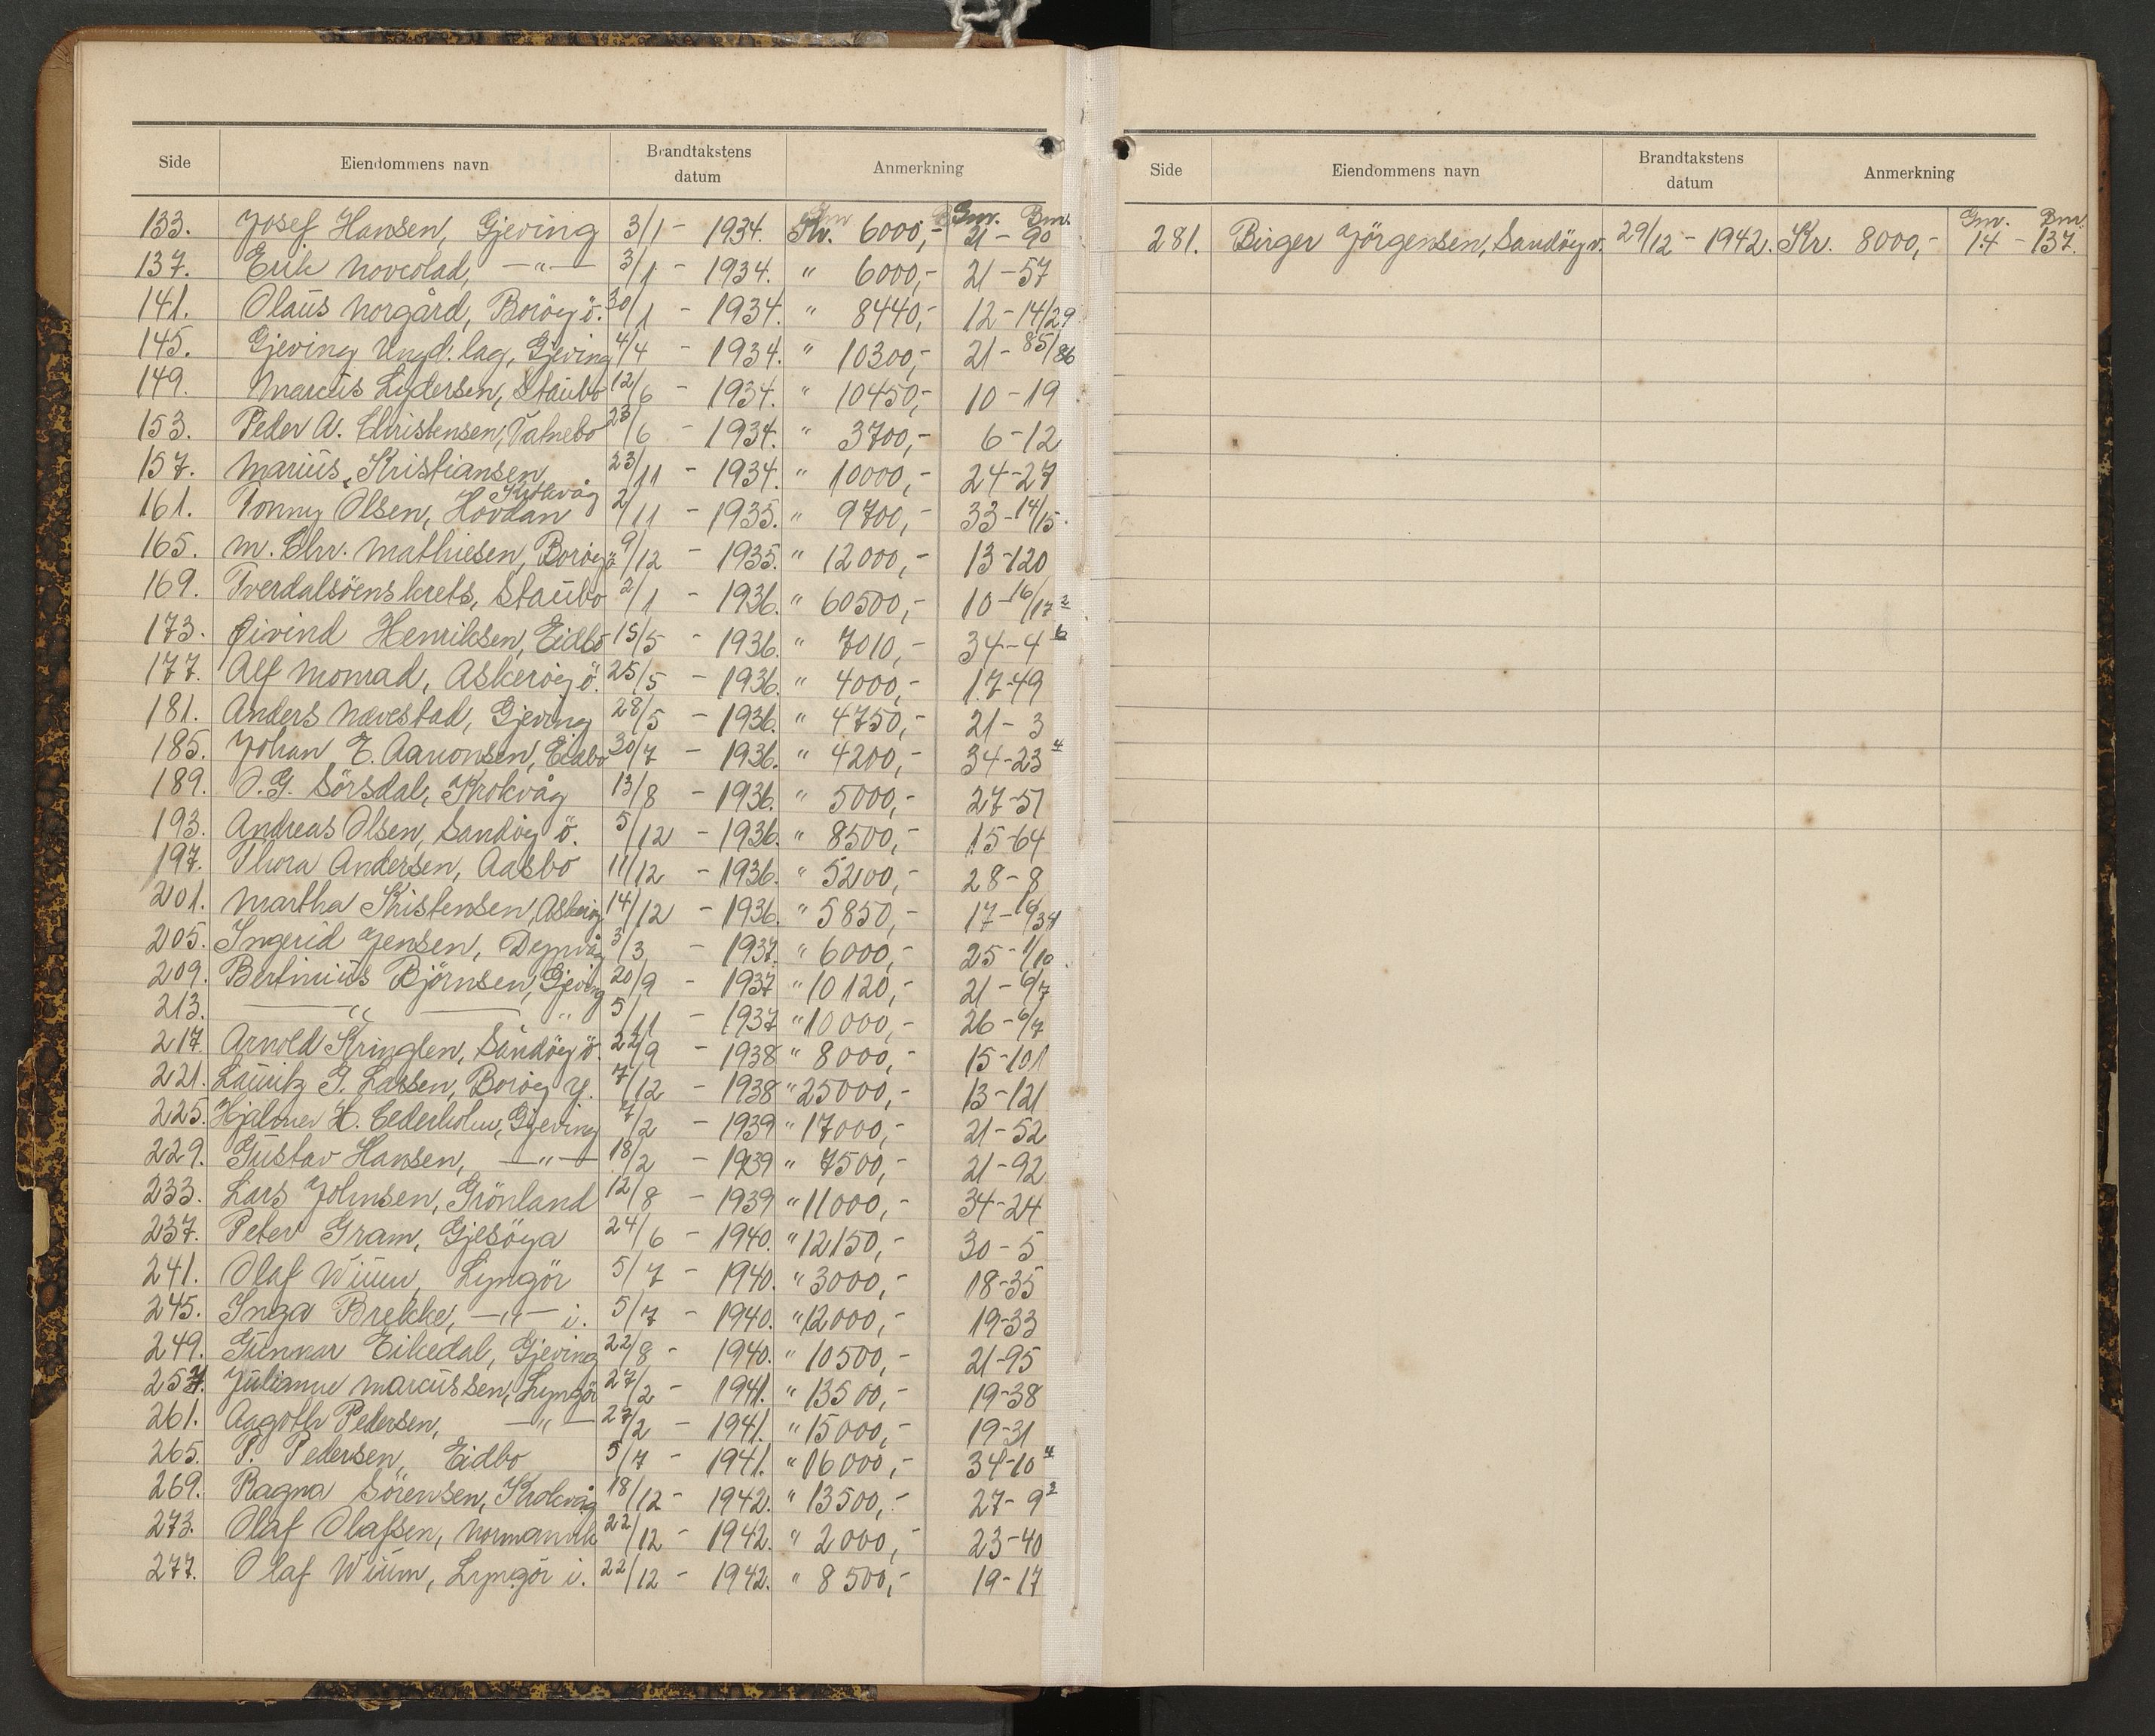 Side Eiendommens navn Brandtakstens datum Anmerkning
Gm. Bm.
133. Josef Hansen, Gjeving 3/1 - 1934. Kr. 6000,- 21 - 90
137. Erik —"— 3/1 - 1934. " 6000,- 21 - 57
141. Olaus Norgård, Boröy ö. 30/1 - 1934. " 8440,- 12 - 14/29
145. Gjeving Ungd. lag, Gjeving 4/4 - 1934. " 10300,- 21 - 85/86
149. Marcus Lydersen, Staubö 12/6 - 1934. " 10450,- 10 - 19
153. Peder A. Christensen, 23/6 - 1934. " 3700,- 6 - 12
157. Marius Kristiansen, Krokvåg 23/11 - 1934. " 10000,- 24 - 27
161. Tonny Olsen, Hovdan 2/11 - 1935. " 9700,- 33 - 14/15.
165. M. Chr. Mathiesen, Boröy ö 9/12 - 1935. " 12000,- 13 - 120
169. Tverdalsöens krets, Staubo 2/1 - 1936. " 60500,- 10 - 16/17 2
173. Øivind Henriksen, Eidbo 15/5 - 1936. " 7010,- 34 - 4 6
177. Alf Monrad, Askeröy ö. 25/5 - 1936. " 4000,- 17 - 49
181. Anders Nævestad, Gjeving 28/5 - 1936. " 4750,- 21 - 3
185. Johan E. Aanonsen, Eidbo 30/7 - 1936. " 4200,- 34 - 23 4
189. O. G. Sörsdal, Krokvåg 13/8 - 1936. " 5000,- 27 - 51
193. Andreas Olsen, Sandöy ö. 5/12 - 1936. " 8500,- 15 - 64
197. Thora Andersen, Aasbo 11/12 - 1936. " 5200,- 28 - 8
201. Martha Kristensen, Askeröy 14/12 - 1936. " 5850,- 17 -
205. Ingerid Jensen, Dypvåg 3/3 - 1937. " 6000,- 25 - 1/10.
209. Bertinius Björnsen, Gjeving 20/9 - 1937 " 10120,- 21 - 6/7
213. —"— " 5/11 - 1937 " 10000,- 26 - 6/7
217. Arnold Kringlen, Sandöy ö. 22/9 - 1938 " 8000,- 15 - 101
221. Lauritz G. Larsen, Boröy y. 7/12 - 1938 " 25000,- 13 - 121
225. Hjalmer H. Cederholm, Gjeving 7/2 - 1939 " 17000,- 21 - 52
229. Gustav Hansen, —"— 18/2 - 1939 " 7500,- 21 - 92
233. Lars Johnsen, Grönland 12/8 - 1939 " 11000,- 34 - 24
237. Peter Gram, Gjesöya 24/6 - 1940. " 12150,- 30 - 5
241. Olaf Wium, Lyngör 5/7 - 1940. " 3000,- 18 - 35
245. Inga Brekke, —"— i. 5/7 - 1940. " 12000,- 19 - 33
249. Gunnar Eikedal, Gjeving 22/8 - 1940. " 10500,- 21 - 95
257. Julianne Marcussen, Lyngör 27/2 - 1941. " 13500,- 19 - 38
261. Aagoth Pedersen, —"— 27/2 - 1941. " 15000,- 19 - 31
265. P. Pedersen, Eidbo 5/7 - 1941. " 16000,- 34 - 10 4
269. Ragna Sörensen, Krokvåg 18/12 - 1942. " 13500,- 27 - 9 2
273. Olaf Olafsen, Normanvik 22/12 - 1942. " 2000,- 23 - 40
277. Olaf Wium, Lyngör i. 22/12 - 1942. " 8500,- 19 - 17
Side Eiendommens navn Brandtakstens datum Anmerkning
Gm. Bm.
281. Birger Jörgensen, Sandöy v. 29/12 - 1942. Kr. 8000,- 14 - 137.